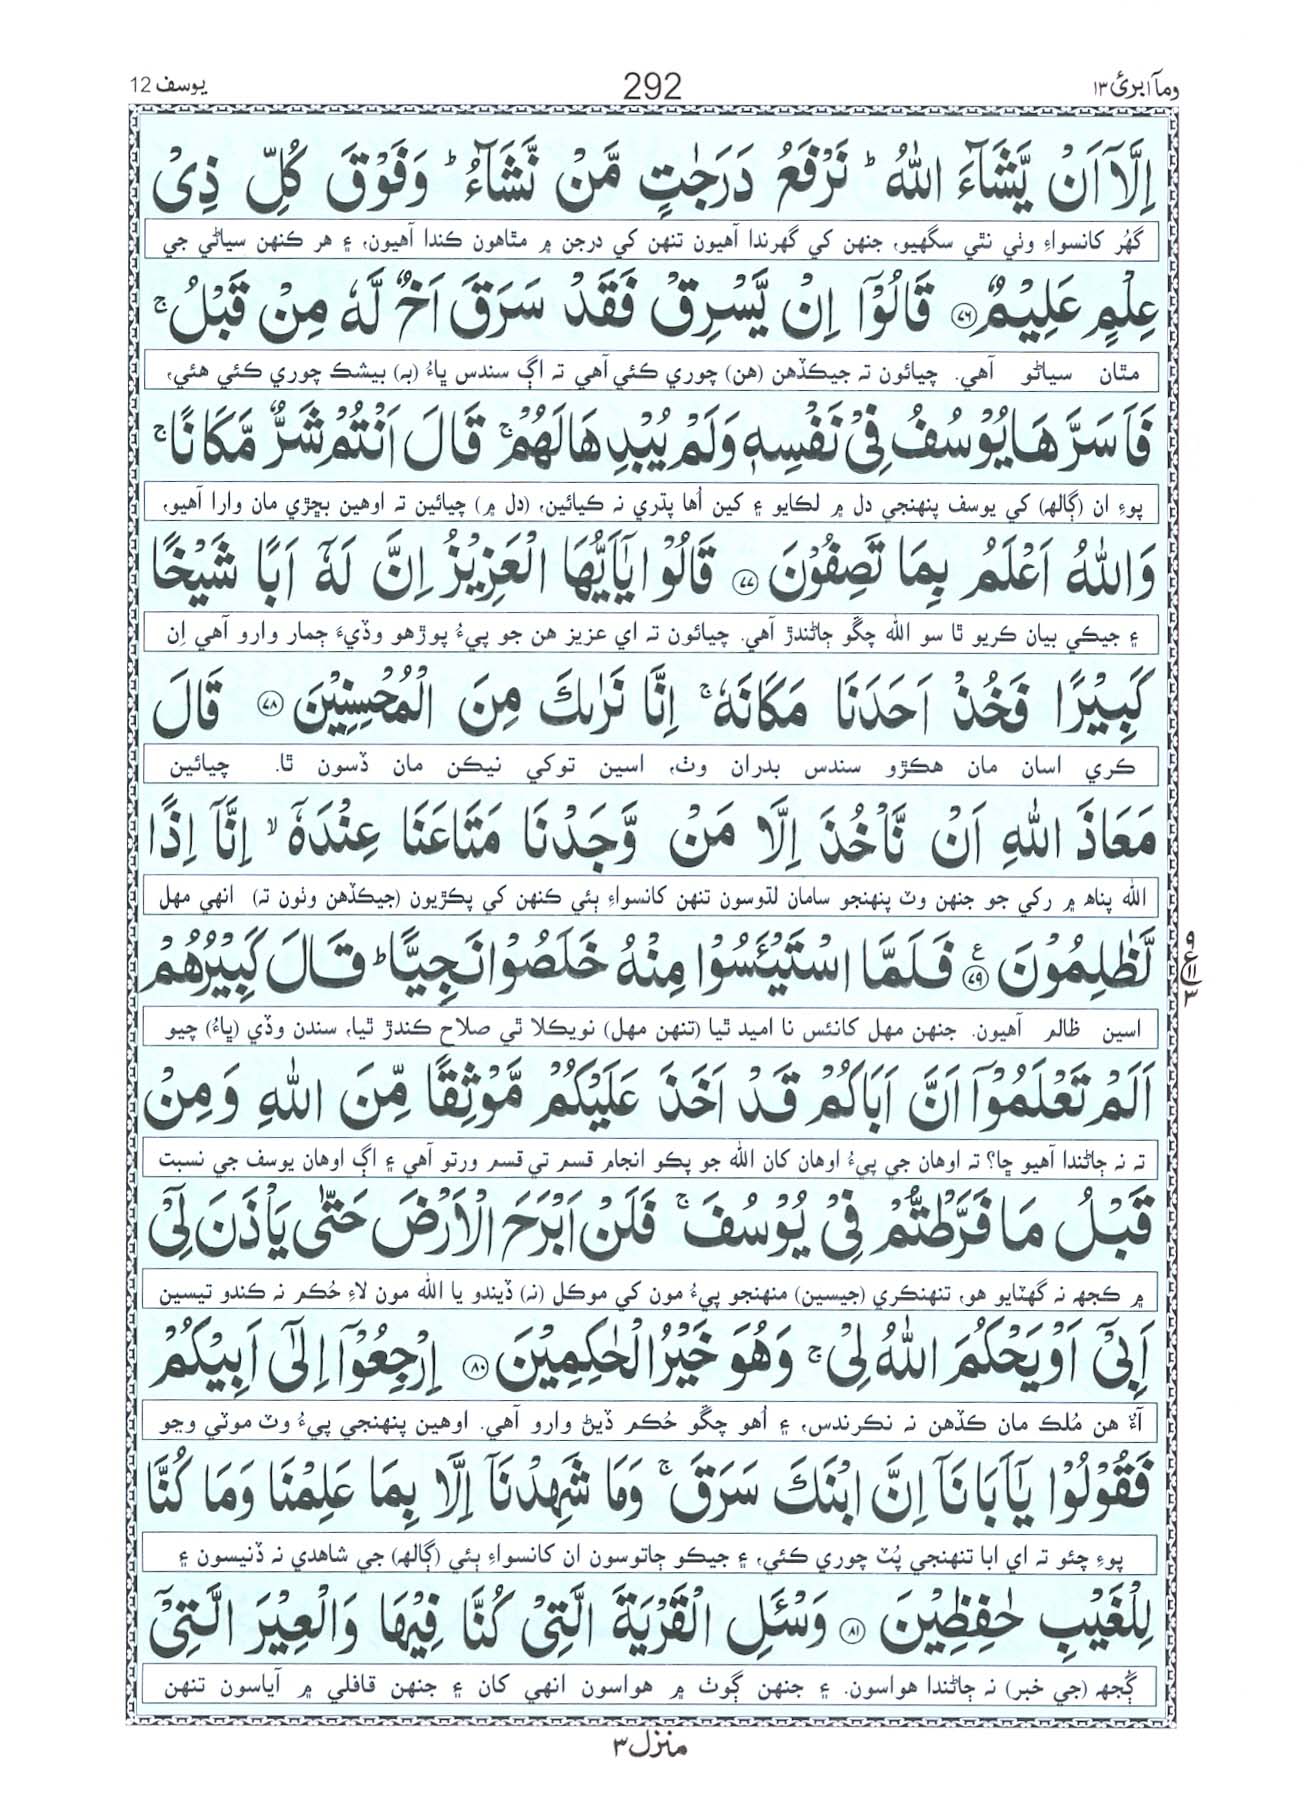 وماۤ ابرئ ١٣
292
يوسف 12
اِلَّاۤ اَنْ يَّشَآءَ اللّٰهُ ؕ نَرْفَعُ دَرَجٰتٍ مَّنْ نَّشَآءُ ؕ وَفَوْقَ كُلِّ ذِىْ
گهُر کانسواءِ وٺي نٿي سگهيو، جنهن کي گهرندا آهيون تنهن کي درجن ۾ مٿاهون ڪندا آهيون، ۽ هر ڪنهن سياڻي جي
عِلْمٍ عَلِيْمٌ ﴿٧٦﴾ قَالُوْۤا اِنْ يَّسْرِقْ فَقَدْ سَرَقَ اَخٌ لَّهٗ مِنْ قَبْلُ ۚ
مٿان سياڻو آهي. چيائون ته جيڪڏهن (هن) چوري ڪئي آهي ته اڳ سندس ڀاءُ (به) بيشڪ چوري ڪئي هئي،
فَاَسَرَّهَا يُوْسُفُ فِىْ نَفْسِهٖ وَلَمْ يُبْدِهَا لَهُمْ ۚ قَالَ اَنْتُمْ شَرٌّ مَّكَانًا ۚ
پوءِ ان (ڳالهه) کي يوسف پنهنجي دل ۾ لڪايو ۽ کين اُها پڌري نه ڪيائين، (دل ۾) چيائين ته اوهين بڇڙي مان وارا آهيو،
وَاللّٰهُ اَعْلَمُ بِمَا تَصِفُوْنَ ﴿٧٧﴾ قَالُوْا يٰۤاَيُّهَا الْعَزِيْزُ اِنَّ لَهٗۤ اَبًا شَيْخًا
۽ جيڪي بيان ڪريو ٿا سو الله چڱو ڄاڻندڙ آهي. چيائون ته اي عزيز هن جو پيءُ پوڙهو وڏيءَ ڄمار وارو آهي اِن
كَبِيْرًا فَخُذْ اَحَدَنَا مَكَانَهٗ ۚ اِنَّا نَرٰىكَ مِنَ الْمُحْسِنِيْنَ ﴿٧٨﴾ قَالَ
ڪري اسان مان هڪڙو سندس بدران وٺ، اسين توکي نيڪن مان ڏسون ٿا. چيائين
مَعَاذَ اللّٰهِ اَنْ نَّاْخُذَ اِلَّا مَنْ وَّجَدْنَا مَتَاعَنَا عِنْدَهٗۤ ۙ اِنَّاۤ اِذًا
الله پناهه ۾ رکي جو جنهن وٽ پنهنجو سامان لڌوسون تنهن کانسواءِ ٻئي ڪنهن کي پڪڙيون (جيڪڏهن وٺون ته) انهي مهل
لَّظٰلِمُوْنَ ﴿٧٩﴾ ع فَلَمَّا اسْتَيْـَٔسُوْا مِنْهُ خَلَصُوْا نَجِيًّا ؕ قَالَ كَبِيْرُهُمْ
٩ ع ١١ ٣
اسين ظالم آهيون. جنهن مهل کانئس نا اميد ٿيا (تنهن مهل) نويڪلا ٿي صلاح ڪندڙ ٿيا، سندن وڏي (ڀاءُ) چيو
اَلَمْ تَعْلَمُوْۤا اَنَّ اَبَاكُمْ قَدْ اَخَذَ عَلَيْكُمْ مَّوْثِقًا مِّنَ اللّٰهِ وَمِنْ
ته نه ڄاڻندا آهيو ڇا؟ ته اوهان جي پيءُ اوهان کان الله جو پڪو انجام قسم تي قسم ورتو آهي ۽ اڳ اوهان يوسف جي نسبت
قَبْلُ مَا فَرَّطْتُّمْ فِىْ يُوْسُفَ ۚ فَلَنْ اَبْرَحَ الْاَرْضَ حَتّٰى يَاْذَنَ لِىْۤ
۾ ڪجهه نه گهٽايو هو، تنهنڪري (جيسين) منهنجو پيءُ مون کي موڪل (نه) ڏيندو يا الله مون لاءِ حُڪم نه ڪندو تيسين
اَبِىْۤ اَوْ يَحْكُمَ اللّٰهُ لِىْ ۚ وَهُوَ خَيْرُ الْحٰكِمِيْنَ ﴿٨٠﴾ اِرْجِعُوْۤا اِلٰۤى اَبِيْكُمْ
آءٌ هن مُلڪ مان ڪڏهن نه نڪرندس، ۽ اُهو چڱو حُڪم ڏيڻ وارو آهي. اوهين پنهنجي پيءُ وٽ موٽي وڃو
فَقُوْلُوْا يٰۤاَبَانَاۤ اِنَّ ابْنَكَ سَرَقَ ۚ وَمَا شَهِدْنَاۤ اِلَّا بِمَا عَلِمْنَا وَمَا كُنَّا
پوءِ چئو ته اي ابا تنهنجي پُٽ چوري ڪئي، ۽ جيڪو ڄاتوسون ان کانسواءِ ٻئي (ڳالهه) جي شاهدي نه ڏنيسون ۽
لِلْغَيْبِ حٰفِظِيْنَ ﴿٨١﴾ وَسْـَٔلِ الْقَرْيَةَ الَّتِىْ كُنَّا فِيْهَا وَالْعِيْرَ الَّتِىْۤ
ڳجهه (جي خبر) نه ڄاڻندا هواسون. ۽ جنهن ڳوٺ ۾ هواسون انهي کان ۽ جنهن قافلي ۾ آياسون تنهن
منزل ٣